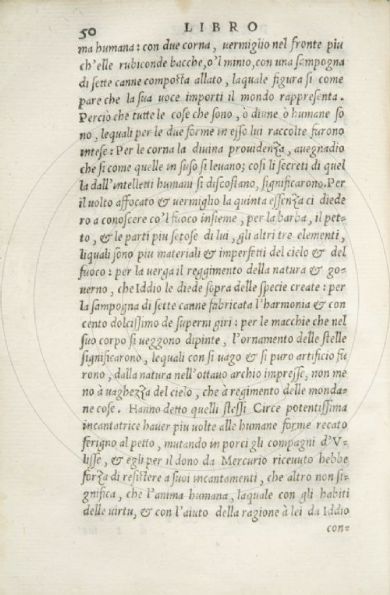 50 LIBRO
ma humana: con due corna, vermiglio nel fronte piu
ch'elle rubiconde bacche, o'l minio, con una sampogna
di sette canne composta allato, laquale figura si come
pare che la sua voce importi il mondo rappresenta.
Percio che tutte le cose che sono, ò diuine ò humane so
no, lequali per le due forme in esso lui raccolte furono
intese: Per le corna la diuina prouidenza, auegnadio
che si come quelle in suso si leuano; cosi li secreti di quel
la dall'intelletti humani si discostano, significarono. Per
il uolto affocato & uermiglio la quinta essenza ci diede
ro a conoscere co'l fuoco insieme, per la barba, il pet-
to, & le parti piu setose di lui, gli altri tre elementi,
liquali sono piu materiali & imperfetti del cielo & del
fuoco: per la uerga il reggimento della natura & go-
uerno, che Iddio le diede sopra delle specie create: per
la sampogna di sette canne fabricata l'harmonia & con
cento dolcissimo de superni giri: per le macchie che nel
suo corpo si ueggono dipinte, l'ornamento delle stelle
significarono, lequali con si uago & si puro artificio fu
rono, dalla natura nell'ottauo archio impresse, non me
no à uaghezza del cielo, che à regimento delle monda-
ne cose. Hanno detto quelli stessi Circe potentissima
incantatrice hauer piu uolte alle humane forme recato
ferigno al petto, mutando in porci gli compagni d'V-
lisse, & egli per il dono da Mercurio riceuuto hebbe
forza di resistere a suoi incantamenti, che altro non si-
gnifica, che l'anima humana, laquale con gli habiti
delle uirtu, & con l'aiuto della ragione à lei da Iddio
con-